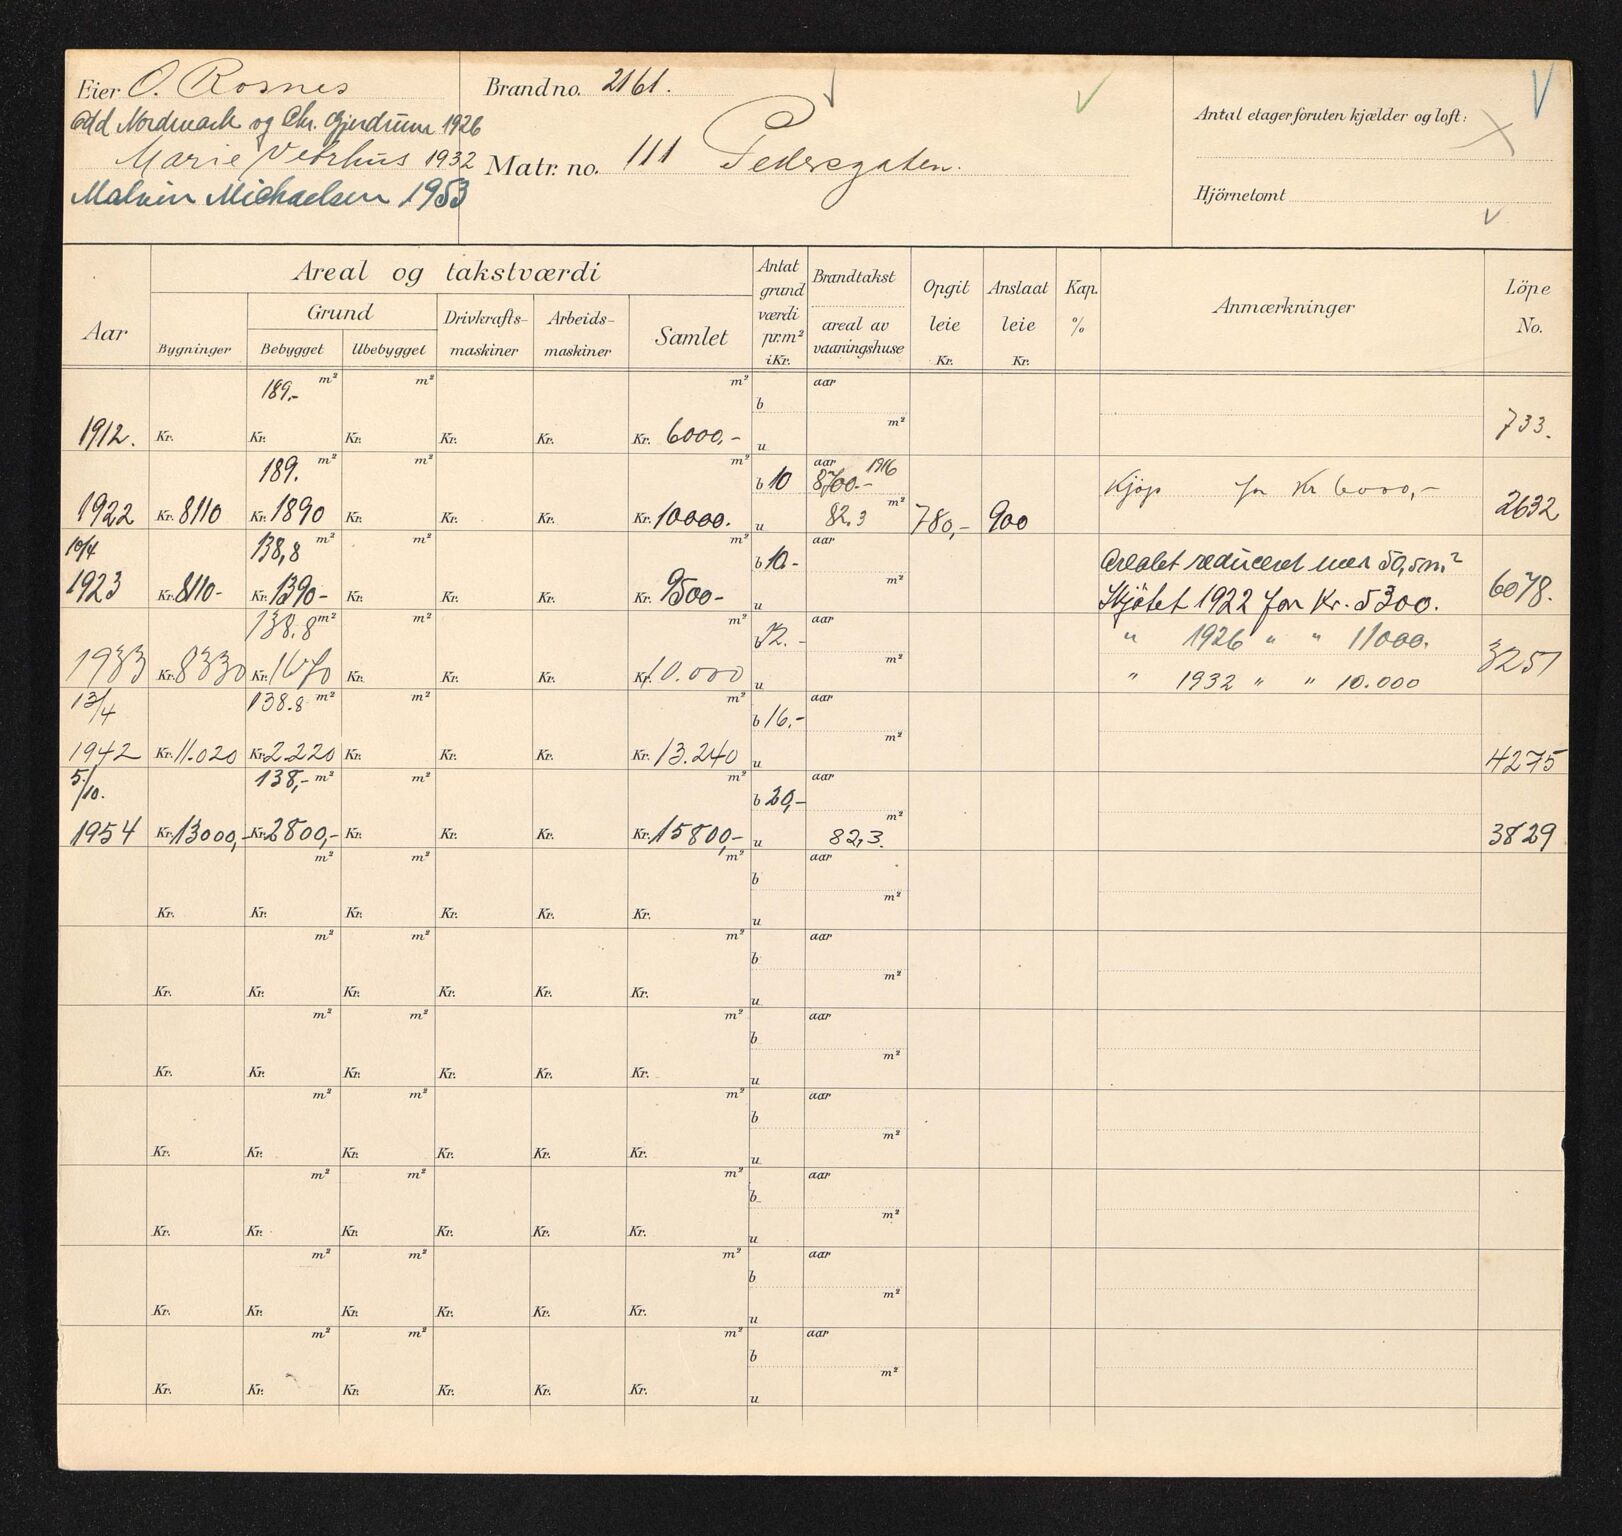 Eier O. Rosnes
Odd Nordmark og Chr. Gjerdrum 1926
Marie Vetrhus 1932
Malvin Michaelsen 1953
Brand no. 2161.
Matr. no. 111 Pedersgaten.
Antal etager foruten kjælder og loft:
Hjörnetomt
Aar
Areal og takstværdi
Grund
Bygninger Bebygget Ubebygget
Drivkrafts-maskiner
Arbeids-maskiner
Samlet
Antat grund værdi pr. m² i Kr.
Brandtakst
areal av vaaningshuse
Opgit leie Kr.
Anslaat leie Kr.
Kap. %
Anmærkninger
Löpe No.
189.- m² m² m² aar
b
m²
1912. Kr. Kr. Kr. Kr. Kr. Kr. 6000,- u 733.
189. m² m² m² b 10 aar 1916
8700.- Kjøp for Kr 6000,-
1922 Kr. 8110 Kr. 1890 Kr. Kr. Kr. Kr. 10000. u 82.3 m² 780,- 900 2632
10/4 138,8 m² m² m² b 10.- aar Arealet reduceret med 50,5 m²
1923 Kr. 8110- Kr. 1390- Kr. Kr. Kr. Kr. 9500- u m² Skjøtet 1922 for Kr. 5300. 6078.
138.8 m² m² m² b 12.- aar " 1926 " " 11000.
1933 Kr. 8330 Kr. 1670 Kr. Kr. Kr. Kr. 10.000 u m² " 1932 " " 10.000 3251
13/4 138.8 m² m² m² b 16.- aar
1942 Kr. 11.020 Kr. 2.220 Kr. Kr. Kr. Kr. 13.240 u m² 4275
5/10. 138,- m² m² m² b 20,- aar
1954 Kr. 13000,- Kr. 2800,- Kr. Kr. Kr. Kr. 15800,- u 82,3. m² 3829
m² m² m² aar
b
m²
Kr. Kr. Kr. Kr. Kr. Kr. u
m² m² m² aar
b
m²
Kr. Kr. Kr. Kr. Kr. Kr. u
m² m² m² aar
b
m²
Kr. Kr. Kr. Kr. Kr. Kr. u
m² m² m² aar
b
m²
Kr. Kr. Kr. Kr. Kr. Kr. u
m² m² m² aar
b
m²
Kr. Kr. Kr. Kr. Kr. Kr. u
m² m² m² aar
b
m²
Kr. Kr. Kr. Kr. Kr. Kr. u
m² m² m² aar
b
m²
Kr. Kr. Kr. Kr. Kr. Kr. u